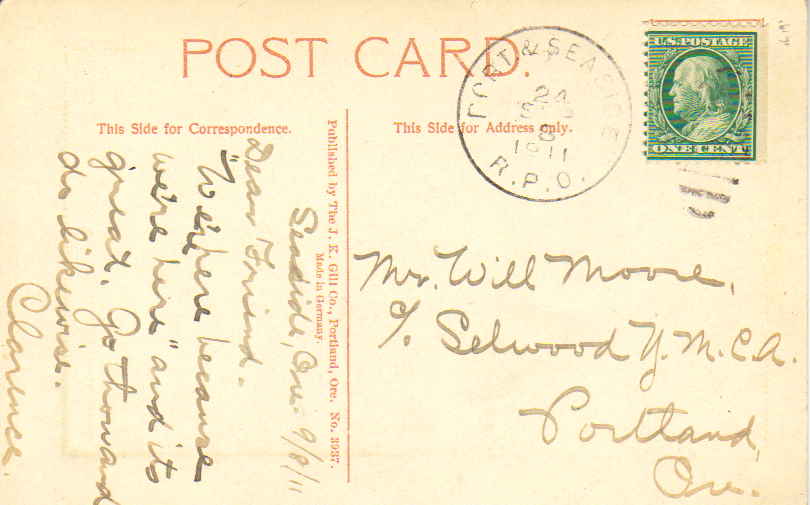 POST CARD.
This Side for Correspondence.
This Side for Address only.
PORT & SEASIDE
24
SEP
8
1911
R.P.O.
U.S. POSTAGE
ONE CENT
Published by The J. K. Gill Co., Portland, Ore. No. 3937.
Made in Germany.
Seaside, Ore. 9/8/11
Dear Friend.
"We're here because
we're here" and its
great. Go thou and
do likewise.
Clarence.
Mr. Will Moore,
c/o Selwood Y.M.C.A.
Portland,
Ore.